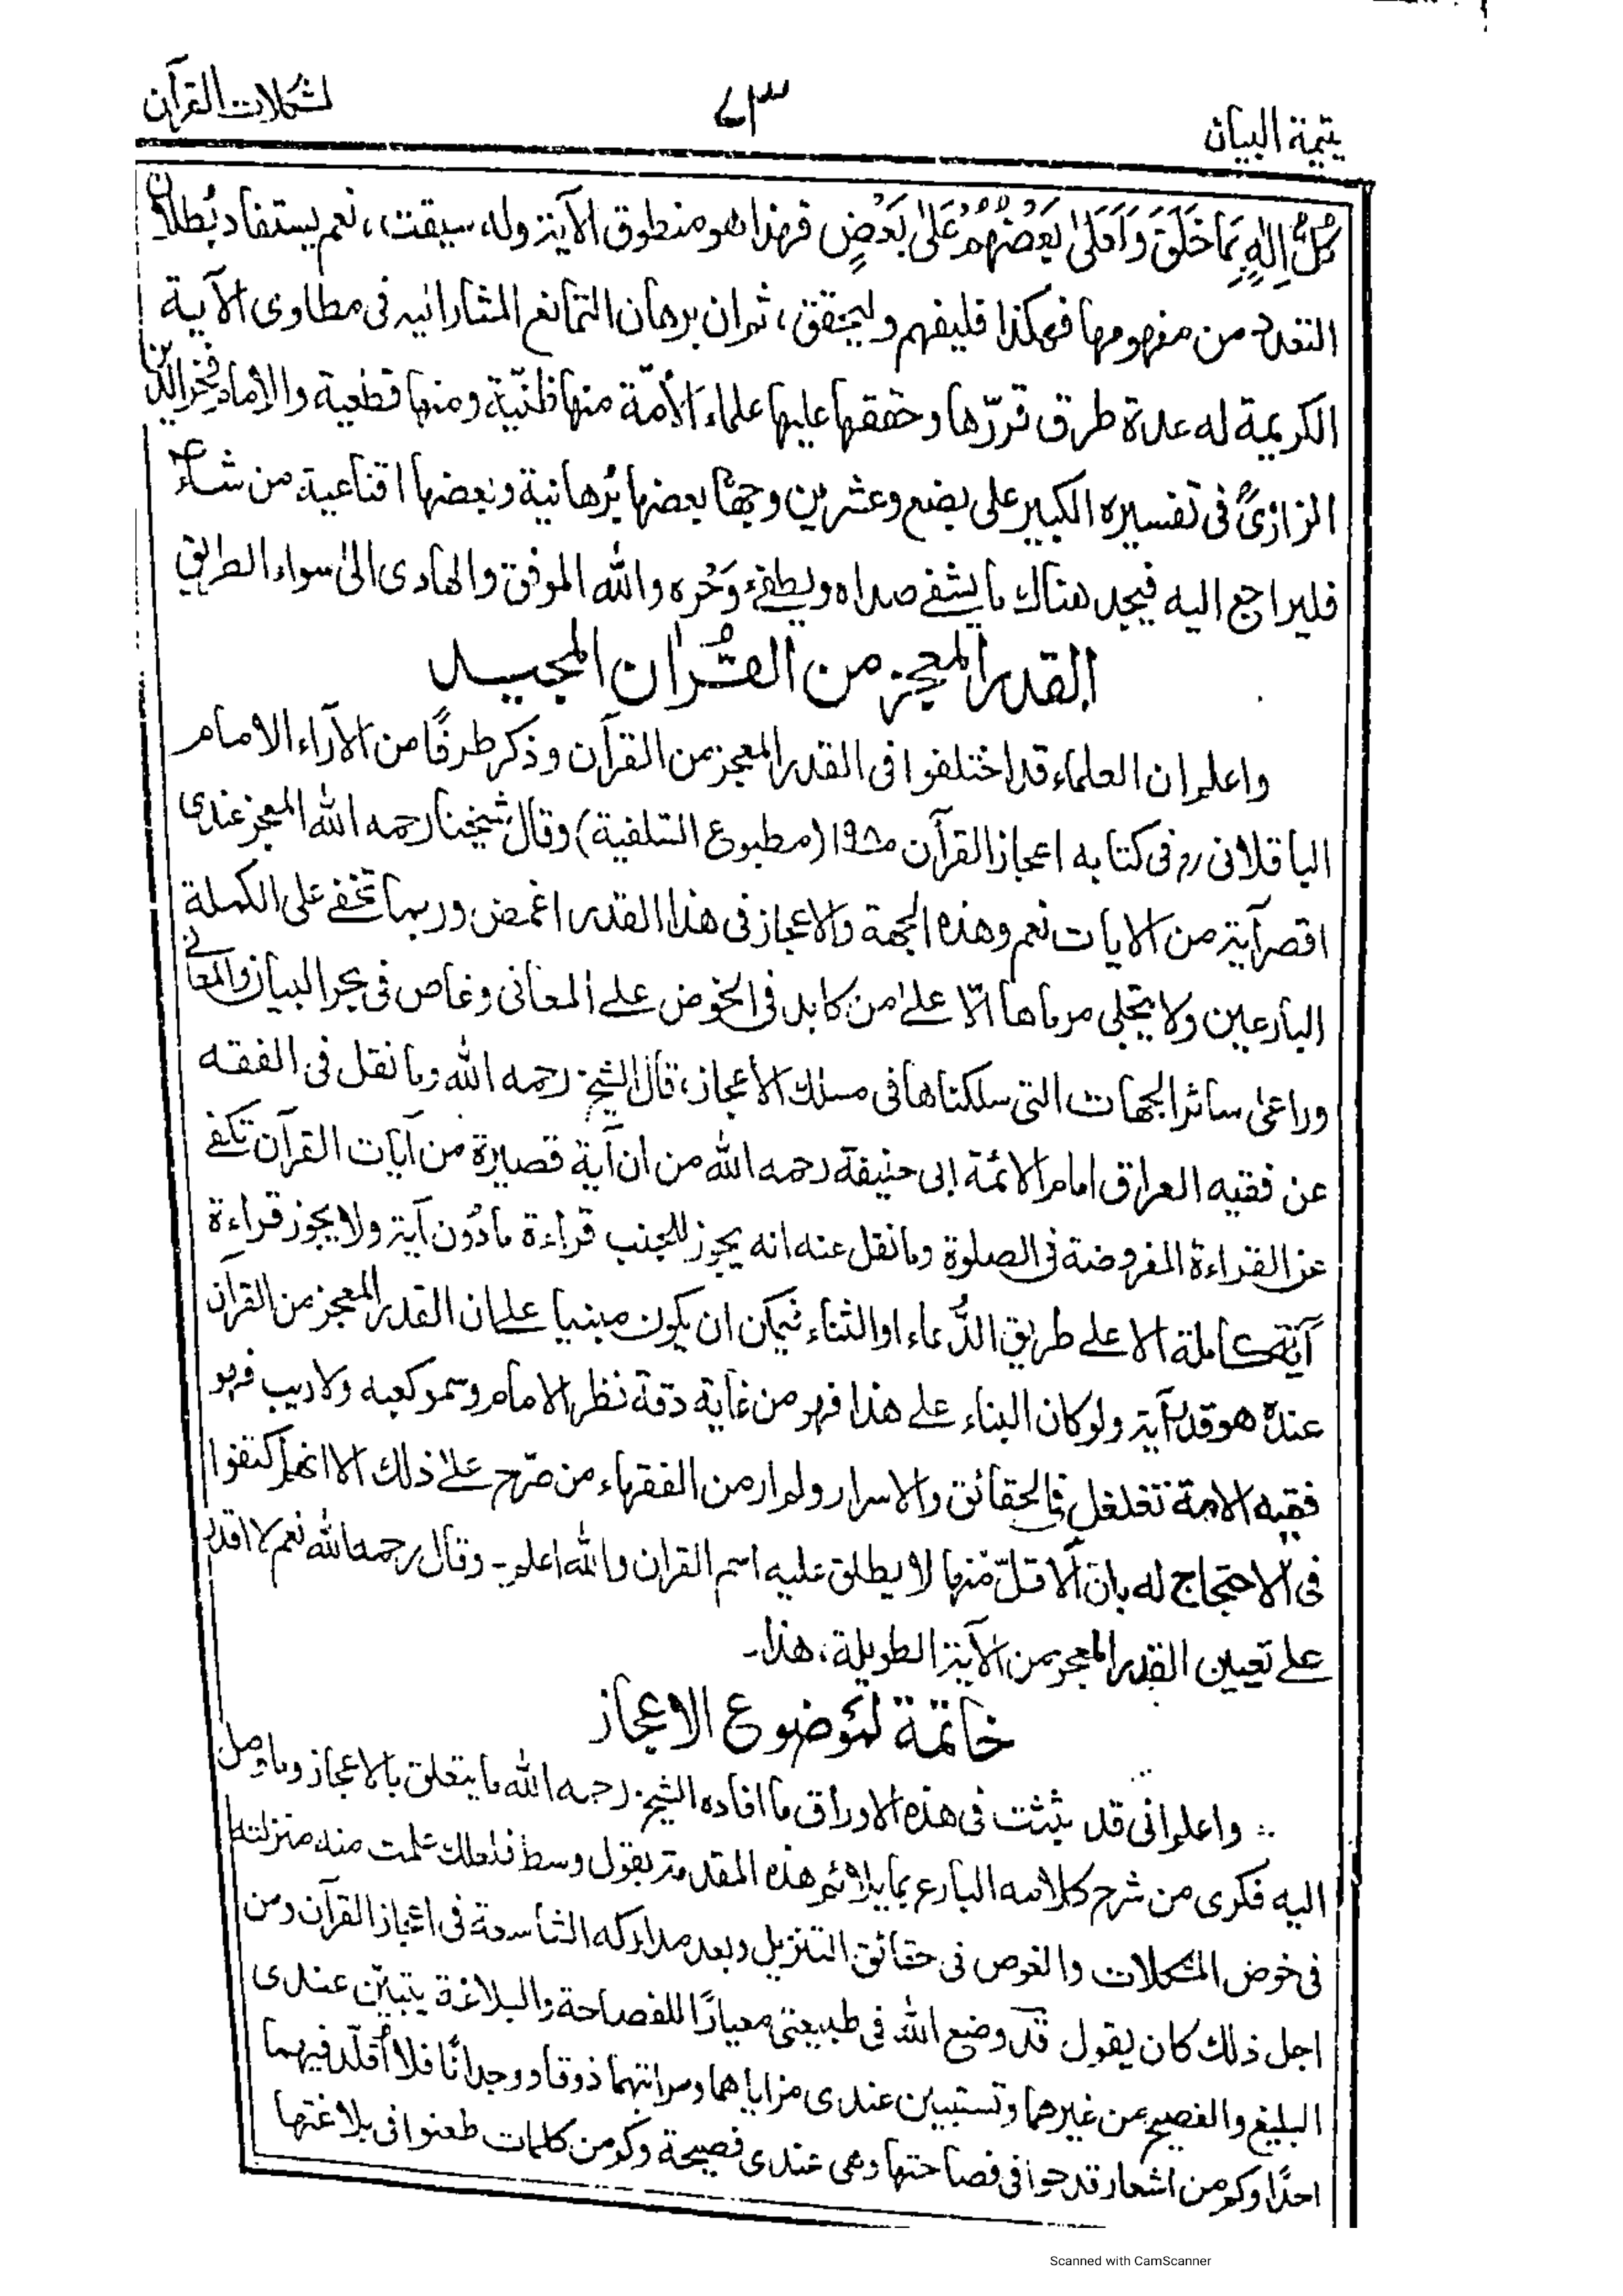 يتيمة البيان ٧٣ لمشكلات القرآن
كُلُّ إِلٰهٍ بِمَا خَلَقَ وَلَعَلٰى بَعْضُهُمْ عَلٰى بَعْضٍ فهذا هو منطوق الآية وله سيقت، نعم يستفاد بُطلان
التعدد من مفهومها فهكذا فليفهم وليحقق، ثم ان برهان التمانع المشار اليه فى مطاوى الآية
الكريمة له عدة طرق قررّها وحققها عليها علماء الأمّة منها ظنّية ومنها قطعية والامام فخر الدين
الرازىؒ فى تفسيره الكبير على بضع وعشرين وجهًا بعضها بُرهانية وبعضها اقناعية من شاء
فليراجع اليه فيجد هناك ما يشفى صداه ويطفئ وَحْره والله الموفق والهادى الىٰ سواء الطريق
القدر المعجز من القُرْاٰن المجيد
واعلم ان العلماء قد اختلفوا فى القدر المعجز من القرآن وذكر طرفًا من الآراء الامام
الباقلانى رح فى كتابه اعجاز القرآن (مطبوع السلفية) وقال شيخنا رحمه الله المعجز عندى
اقصر آية من الايات نعم وهذه الجهة والاعجاز فى هذا القدر اغمض وربما تخفى على الكملة
البارعين ولا يتجلى مرماها الّا علىٰ من كابد فى الخوض على المعانى وغاص فى بحر البيان والمعانى
وراعىٰ سائر الجهات التى سلكناها فى مسلك الاعجاز، قال الشيخ رحمه الله وما نقل فى الفقه
عن فقيه العراق امام الائمة ابى حنيفة رحمه الله من ان آية قصيرة من آيات القرآن تكفى
عن القراءة المفروضة فى الصلوة وما نقل عنه انه يجوز للجنب قراءة ما دُون آية ولا يجوز قراءة
آية كاملة الا على طريق الدُّعاء او الثناء فيمكن ان يكون مبنيا على ان القدر المعجز من القرآن
عنده هو قدر آية ولو كان البناء على هذا فهو من غاية دقة نظر الامام وسمو كعبه ولا ريب فهو
فقيه الامة تغلغل فى الحقائق والاسرار ولم ار من الفقهاء من صرّح علىٰ ذلك الا انهم اكتفوا
فى الاحتجاج له بان الاقلّ منها لا يطلق عليه اسم القران والله اعلم ـ وقال رحمه الله نعم لا اقدر
على تعيين القدر المعجز من الآية الطويلة، هذا ـ
خاتمة لموضوع الاعجاز
واعلم انى قد بثثت فى هذه الاوراق ما افاده الشيخ رحمه الله ما يتعلق بالاعجاز وما وصل
اليه فكرى من شرح كلامه البارع بما يلائم هذه المقدمة بقول وسط فلعلك علمت منه منزلته
فى خوض المشكلات والغوص فى حقائق التنزيل وبعد مداركه الشاسعة فى اعجاز القرآن ومن
اجل ذلك كان يقول قد وضع الله فى طبيعتى معيارًا للفصاحة والبلاغة يتبيّن عندى
البليغ والفصيح من غيرهما وتستبين عندى مزاياهما ومراتبهما ذوقا ووجدانًا فلا أُقلّد فيهما
احدًا وكم من اشعار قدحوا فى فصاحتها وهى عندى فصيحة وكم من كلمات طعنوا فى بلاغتها
Scanned with CamScanner